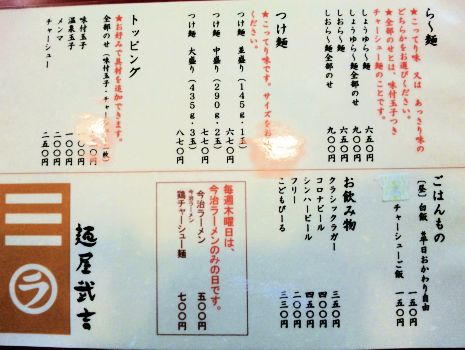 ら〜麺
★こってり味 又は あっさり味の
どちらかをお選びください。
★全部のせとは、味付玉子つき
チャーシュー麺のことです。
しょうゆら〜麺 六五〇
しょうゆら〜麺全部のせ 九〇〇
しおら〜麺 六五〇
しおら〜麺 全部のせ 九〇〇
つけ麺
★こってり味です。サイズをお
ください。
つけ麺 並盛り (145g・1玉) 六七〇
つけ麺 中盛り (290g・2玉) 七七〇
つけ麺 大盛り (435g・3玉) 八七〇
トッピング
★お好みで具材を追加できます。
全部のせ (味付玉子・チャーシュー 枚)
味付玉子 一〇〇
温泉玉子 一〇〇
メンマ 一〇〇
チャーシュー 二五〇
ごはんもの
(昼) 白飯 平日おかわり自由 一五〇
チャーシューご飯 一五〇
お飲み物
クラシックラガー 三五〇
コロナビール 四五〇
シンハービール 四五〇
フリー 二〇〇
こどもびーる 二三〇
毎週木曜日は、
今治ラーメンのみの日です。
今治ラーメン 五〇〇
今治ラーメン
鶏チャーシュー麺 七〇〇
麺屋武吉
ラ